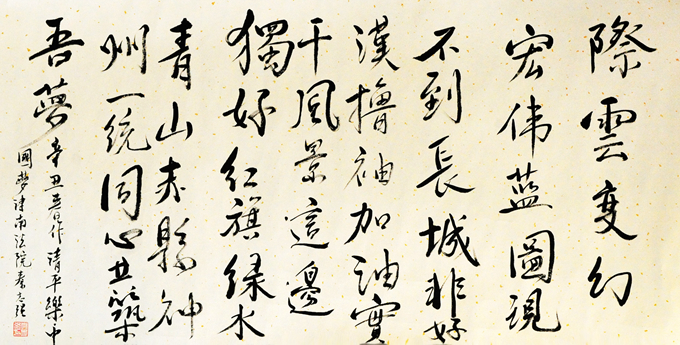 際雲变幻
宏伟蓝圖現
不到長城非好
漢擼袖加油實
干風景這邊
獨好红旗绿水
青山赤縣神
州一统同心共築
吾夢 辛丑春作清平樂中
國夢津南法院